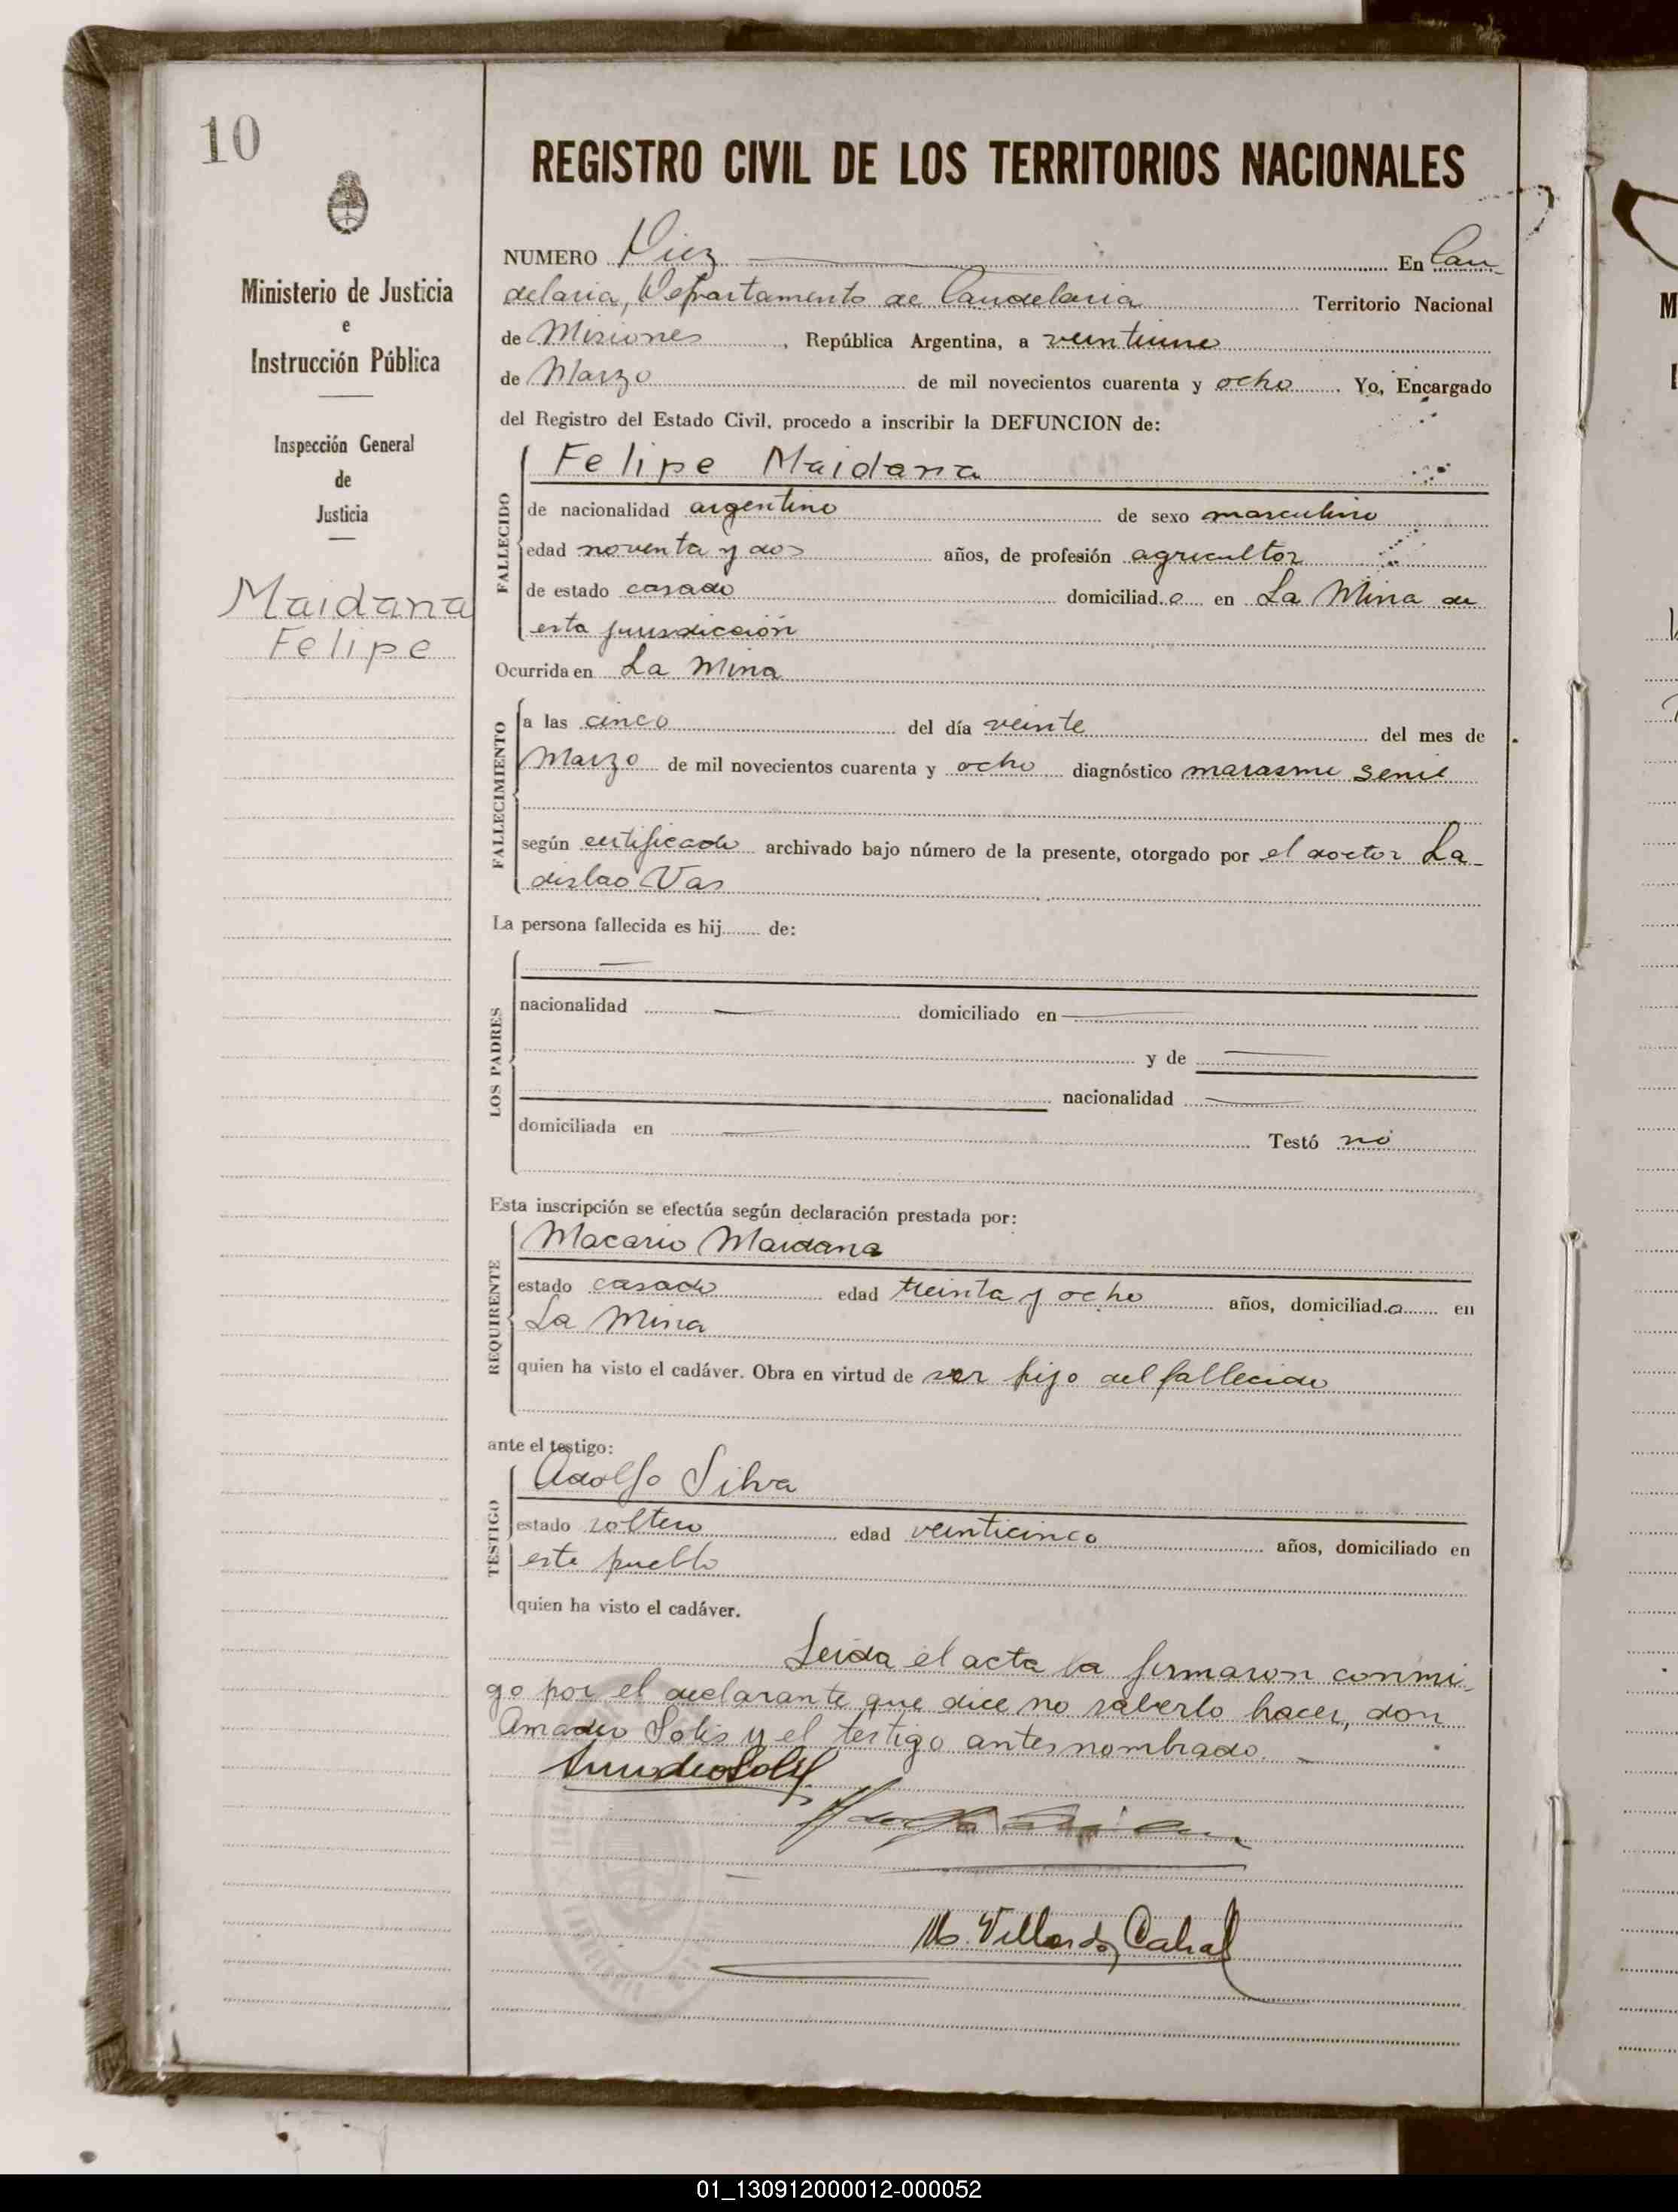 10
Ministerio de Justicia
e
Instrucción Pública
Inspección General
de
Justicia
Maidana
Felipe
REGISTRO CIVIL DE LOS TERRITORIOS NACIONALES
NUMERO Diez En Can-
delaria, Departamento de Candelaria Territorio Nacional
de Misiones, República Argentina, a veintiuno
de Marzo de mil novecientos cuarenta y ocho. Yo, Encargado
del Registro del Estado Civil, procedo a inscribir la DEFUNCION de:
FALLECIDO
Felipe Maidana
de nacionalidad argentino de sexo masculino
edad noventa y dos años, de profesión agricultor
de estado casado domiciliado en La Mina de
esta jurisdicción
Ocurrida en La Mina
FALLECIMIENTO
a las cinco del día veinte del mes de
Marzo de mil novecientos cuarenta y ocho diagnóstico marasmo senil
según certificado archivado bajo número de la presente, otorgado por el doctor La-
dislao Vas
La persona fallecida es hij........ de:
LOS PADRES
nacionalidad domiciliado en
y de
nacionalidad
domiciliada en Testó no
Esta inscripción se efectúa según declaración prestada por:
REQUIRENTE
Macario Maidana
estado casado edad treinta y ocho años, domiciliado en
La Mina
quien ha visto el cadáver. Obra en virtud de ser hijo del fallecido
ante el testigo:
TESTIGO
Adolfo Silva
estado soltero edad veinticinco años, domiciliado en
este pueblo
quien ha visto el cadáver.
Leida el acta la firmaron conmi-
go por el declarante que dice no saberlo hacer, don
Amadeo Solis y el testigo antes nombrado. -
Amadeo Solis
M. Villordo Cabral
01_130912000012-000052